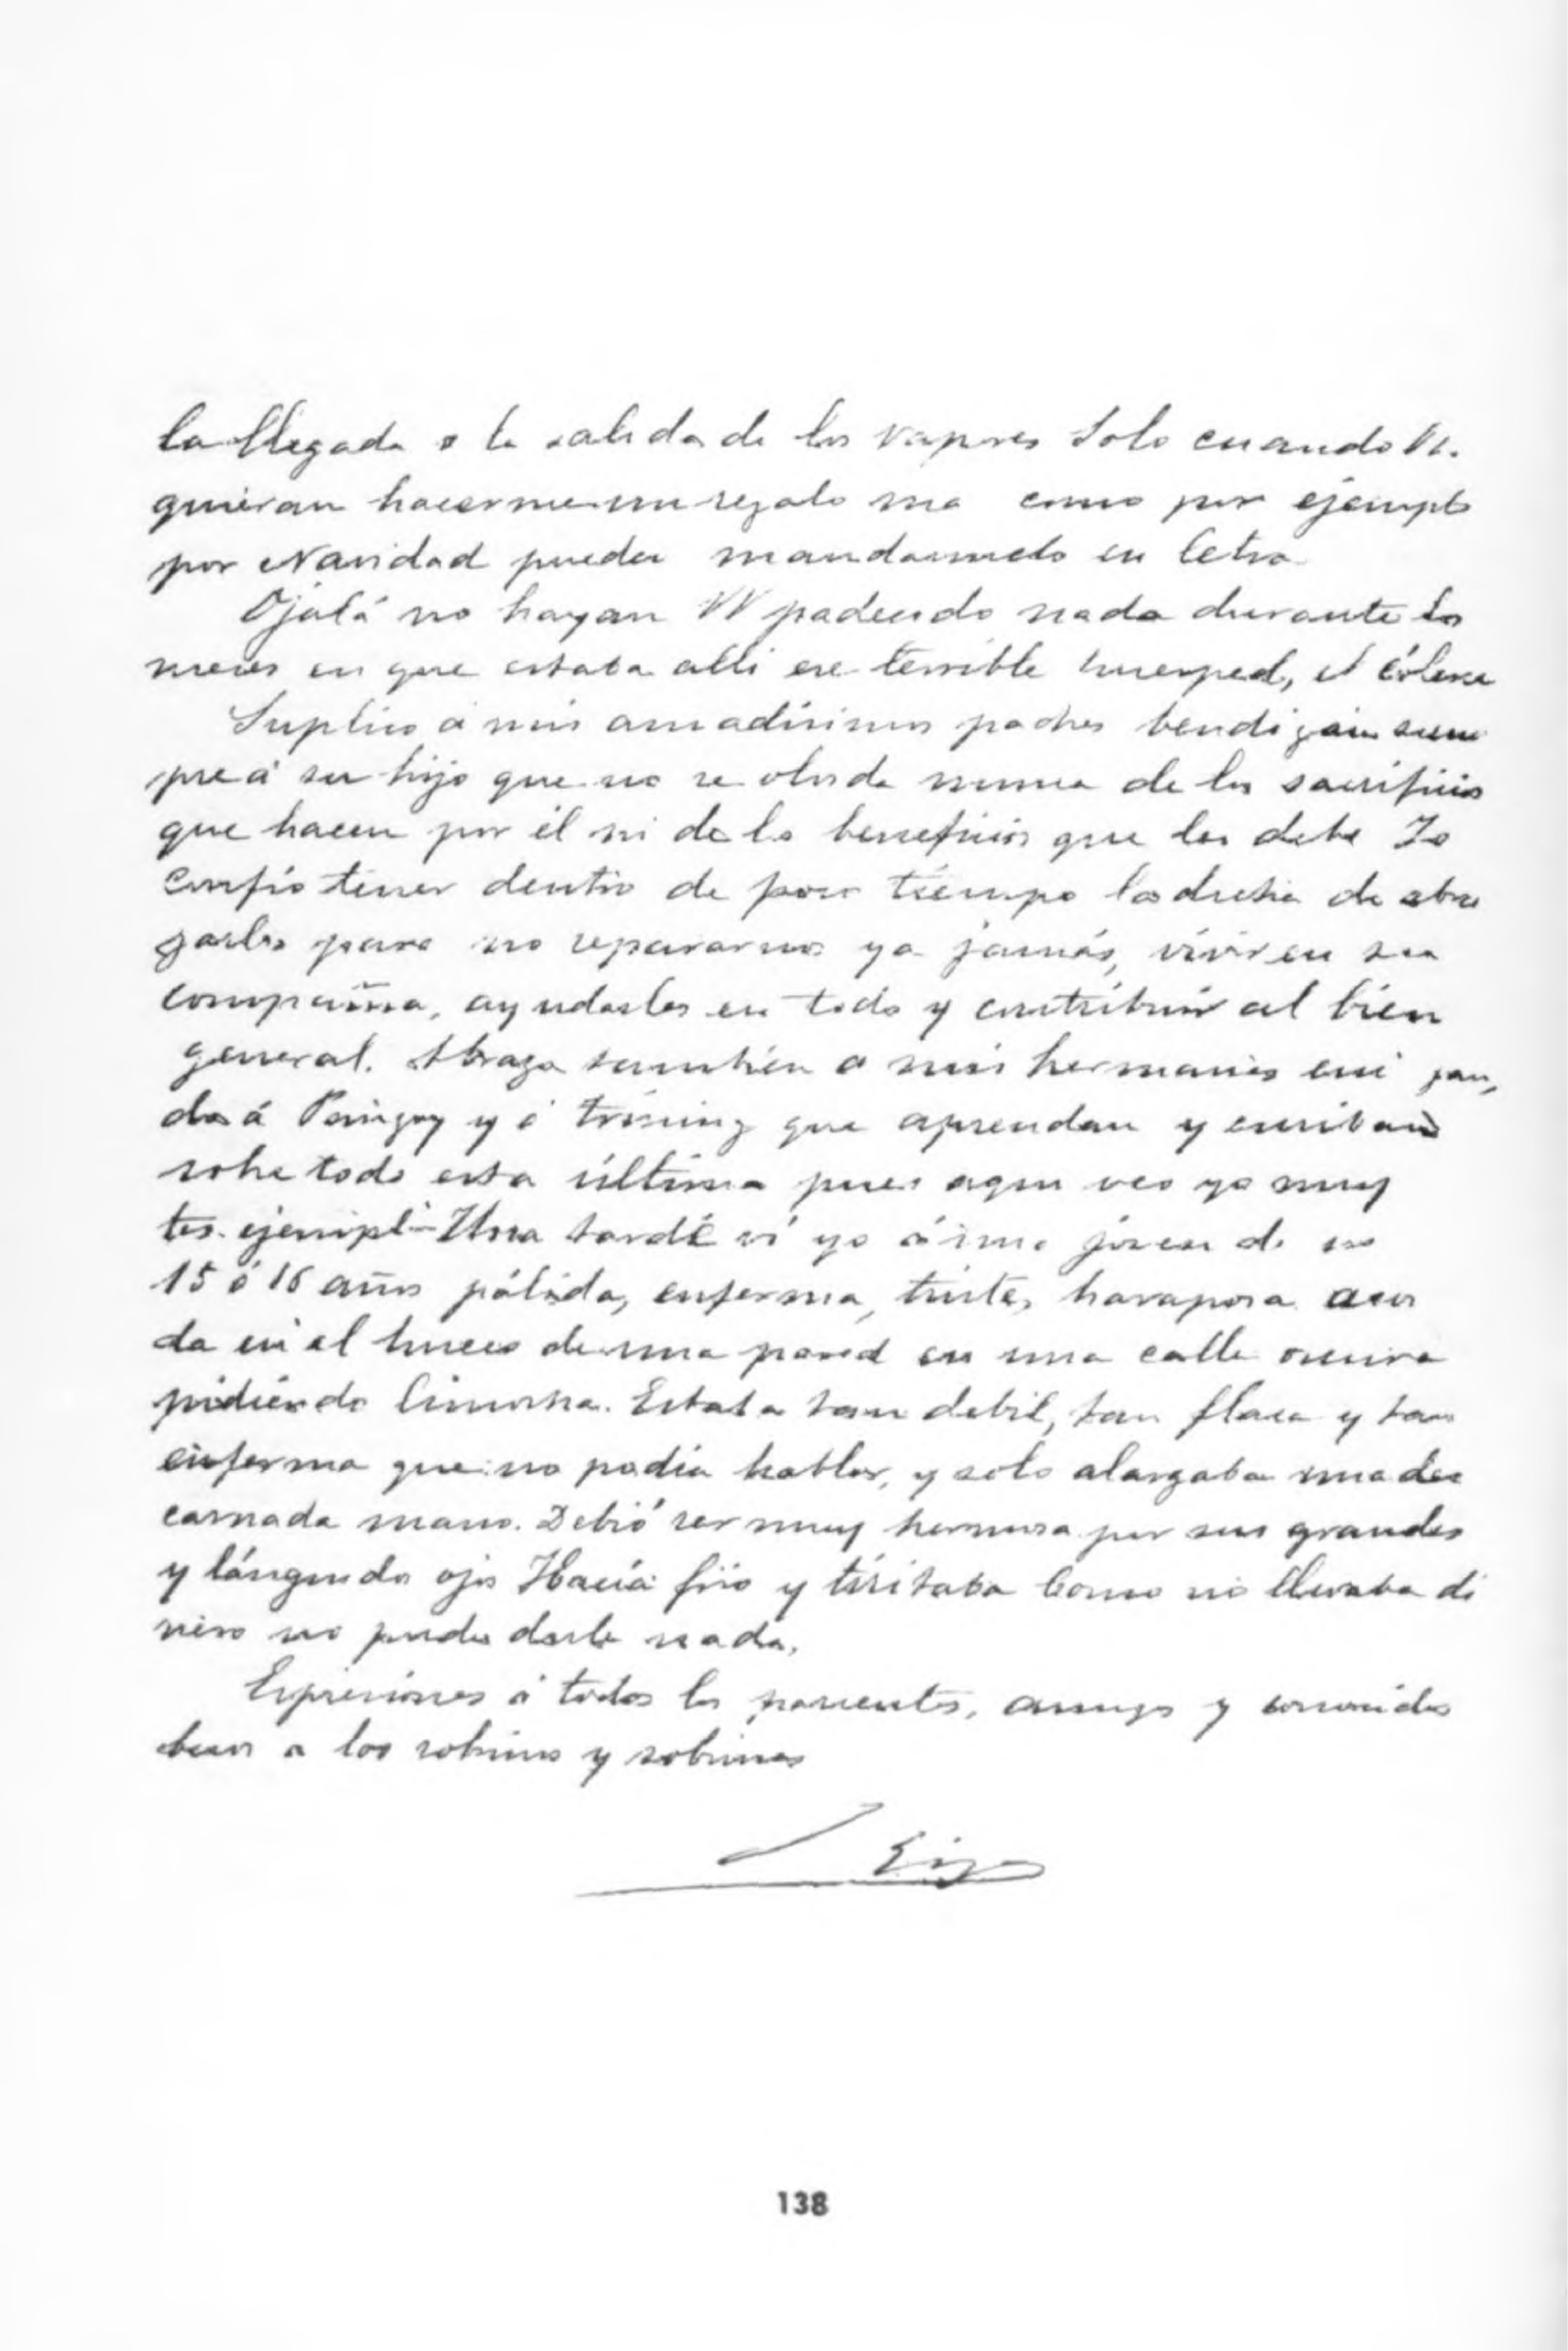 la llegada o la salida de los vapores Solo cuando VV.
quieran hacerme un regalo como por ejemplo
por Navidad pueden mandarmelo en letra
Ojalá no hayan VV padecido nada durante los
meses en que estaba alli ese terrible huesped, el cólera
Suplico á mis amadísimos padres bendigan siem
pre á su hijo que no se olvida nunca de los sacrificios
que hacen por él ni de los beneficios que les debe Yo
confio tener dentro de poco tiempo la dicha de abra
zarles para no separarnos ya jamás, vivir en su
compañia, ayudarles en todo y contribuir al bien
general. Abrazo tambien a mis hermanas
á y á Trining que aprendan y escriban
sobre todo esta última pues aqui veo yo muy
tes ejempl Una tarde ví yo á una jóven de
15 ó 16 años pálida, enferma, triste, haraposa
da en el hueco de una pared en una calle oscura
pidiendo limosna. Estaba tan debil, tan flaca y tan
enferma que no podia hablar, y solo alargaba una des
carnada mano. Debió ser muy hermosa por sus grandes
y lánguidos ojos Hacía frio y tiritaba Como no llevaba di
nero no pude darle nada.
Espresiones á todos los parientes, amigos y conocidos
besos a los sobrinos y sobrinas
138